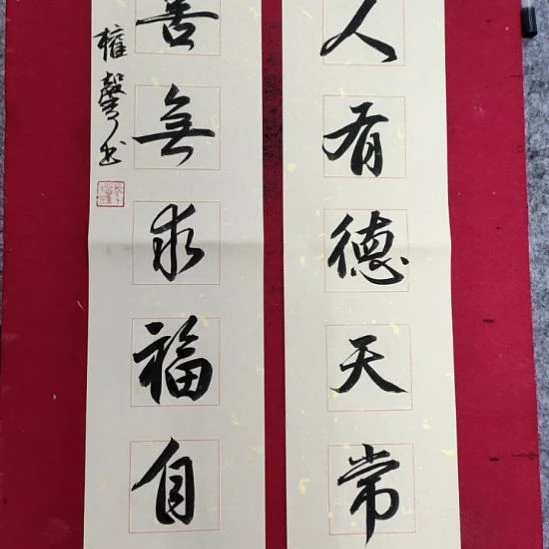 人有德天常
善無求福自
權馨书